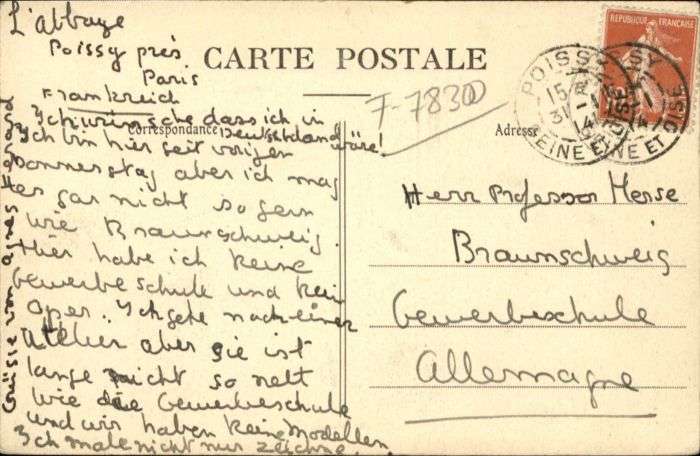 L'abbaye
Poissy près
Paris
Frankreich
CARTE POSTALE
F-78300
RÉPUBLIQUE FRANÇAISE
POISSY
SEINE ET OISE
Correspondance
Adresse
Ich wünsche dass ich in
Deutschland wäre!
Ich bin hier seit vorigen
Donnerstag aber ich mag
es gar nicht so gern
wie Braunschweig.
Hier habe ich keine
Gewerbeschule und kein
Oper. Ich gehe nach einer
Atelier aber sie ist
lange nicht so nett
wie die Gewerbeschule
und wir haben keine Modellen.
Ich male nicht nur zeichne.
Grüsse von Agnes
Herr Professor Hesse
Braunschweig
Gewerbeschule
Allemagne